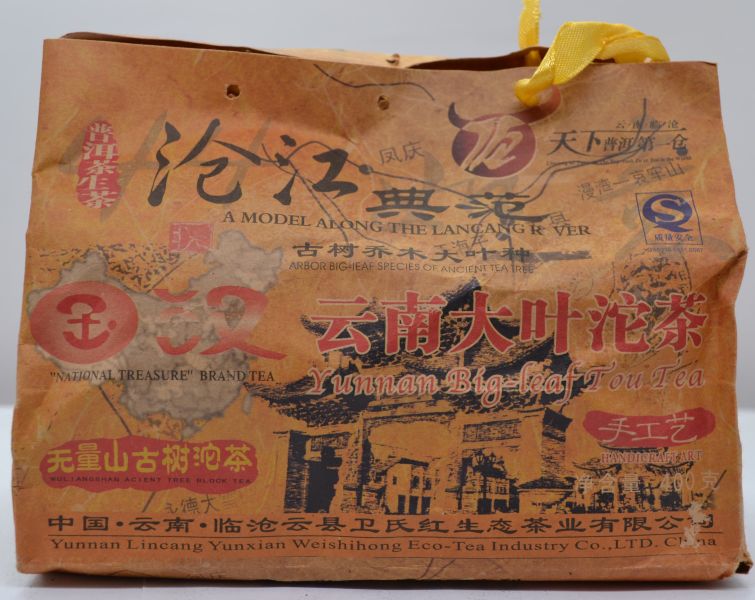 普洱茶生茶
沧江
典范
A MODEL ALONG THE LANCANG R VER
云 南 临 沧
天下普洱第一仓
凤庆
漫湾
哀牢山
质量安全
古树乔木大叶种
ARBOR BIG-LEAF SPECIES OF ANCIENT TEA TREE
云南大叶沱茶
Yunnan Big-leaf Tou Tea
"NATIONAL TREASURE" BRAND TEA
手工艺
HANDICRAFT ART
无量山古树沱茶
WULIANGSHAN ACIENT TREE BLOCK TEA
净含量:400克
中国·云南·临沧云县卫氏红生态茶业有限公司
Yunnan Lincang Yunxian Weishihong Eco-Tea Industry Co.,LTD. China